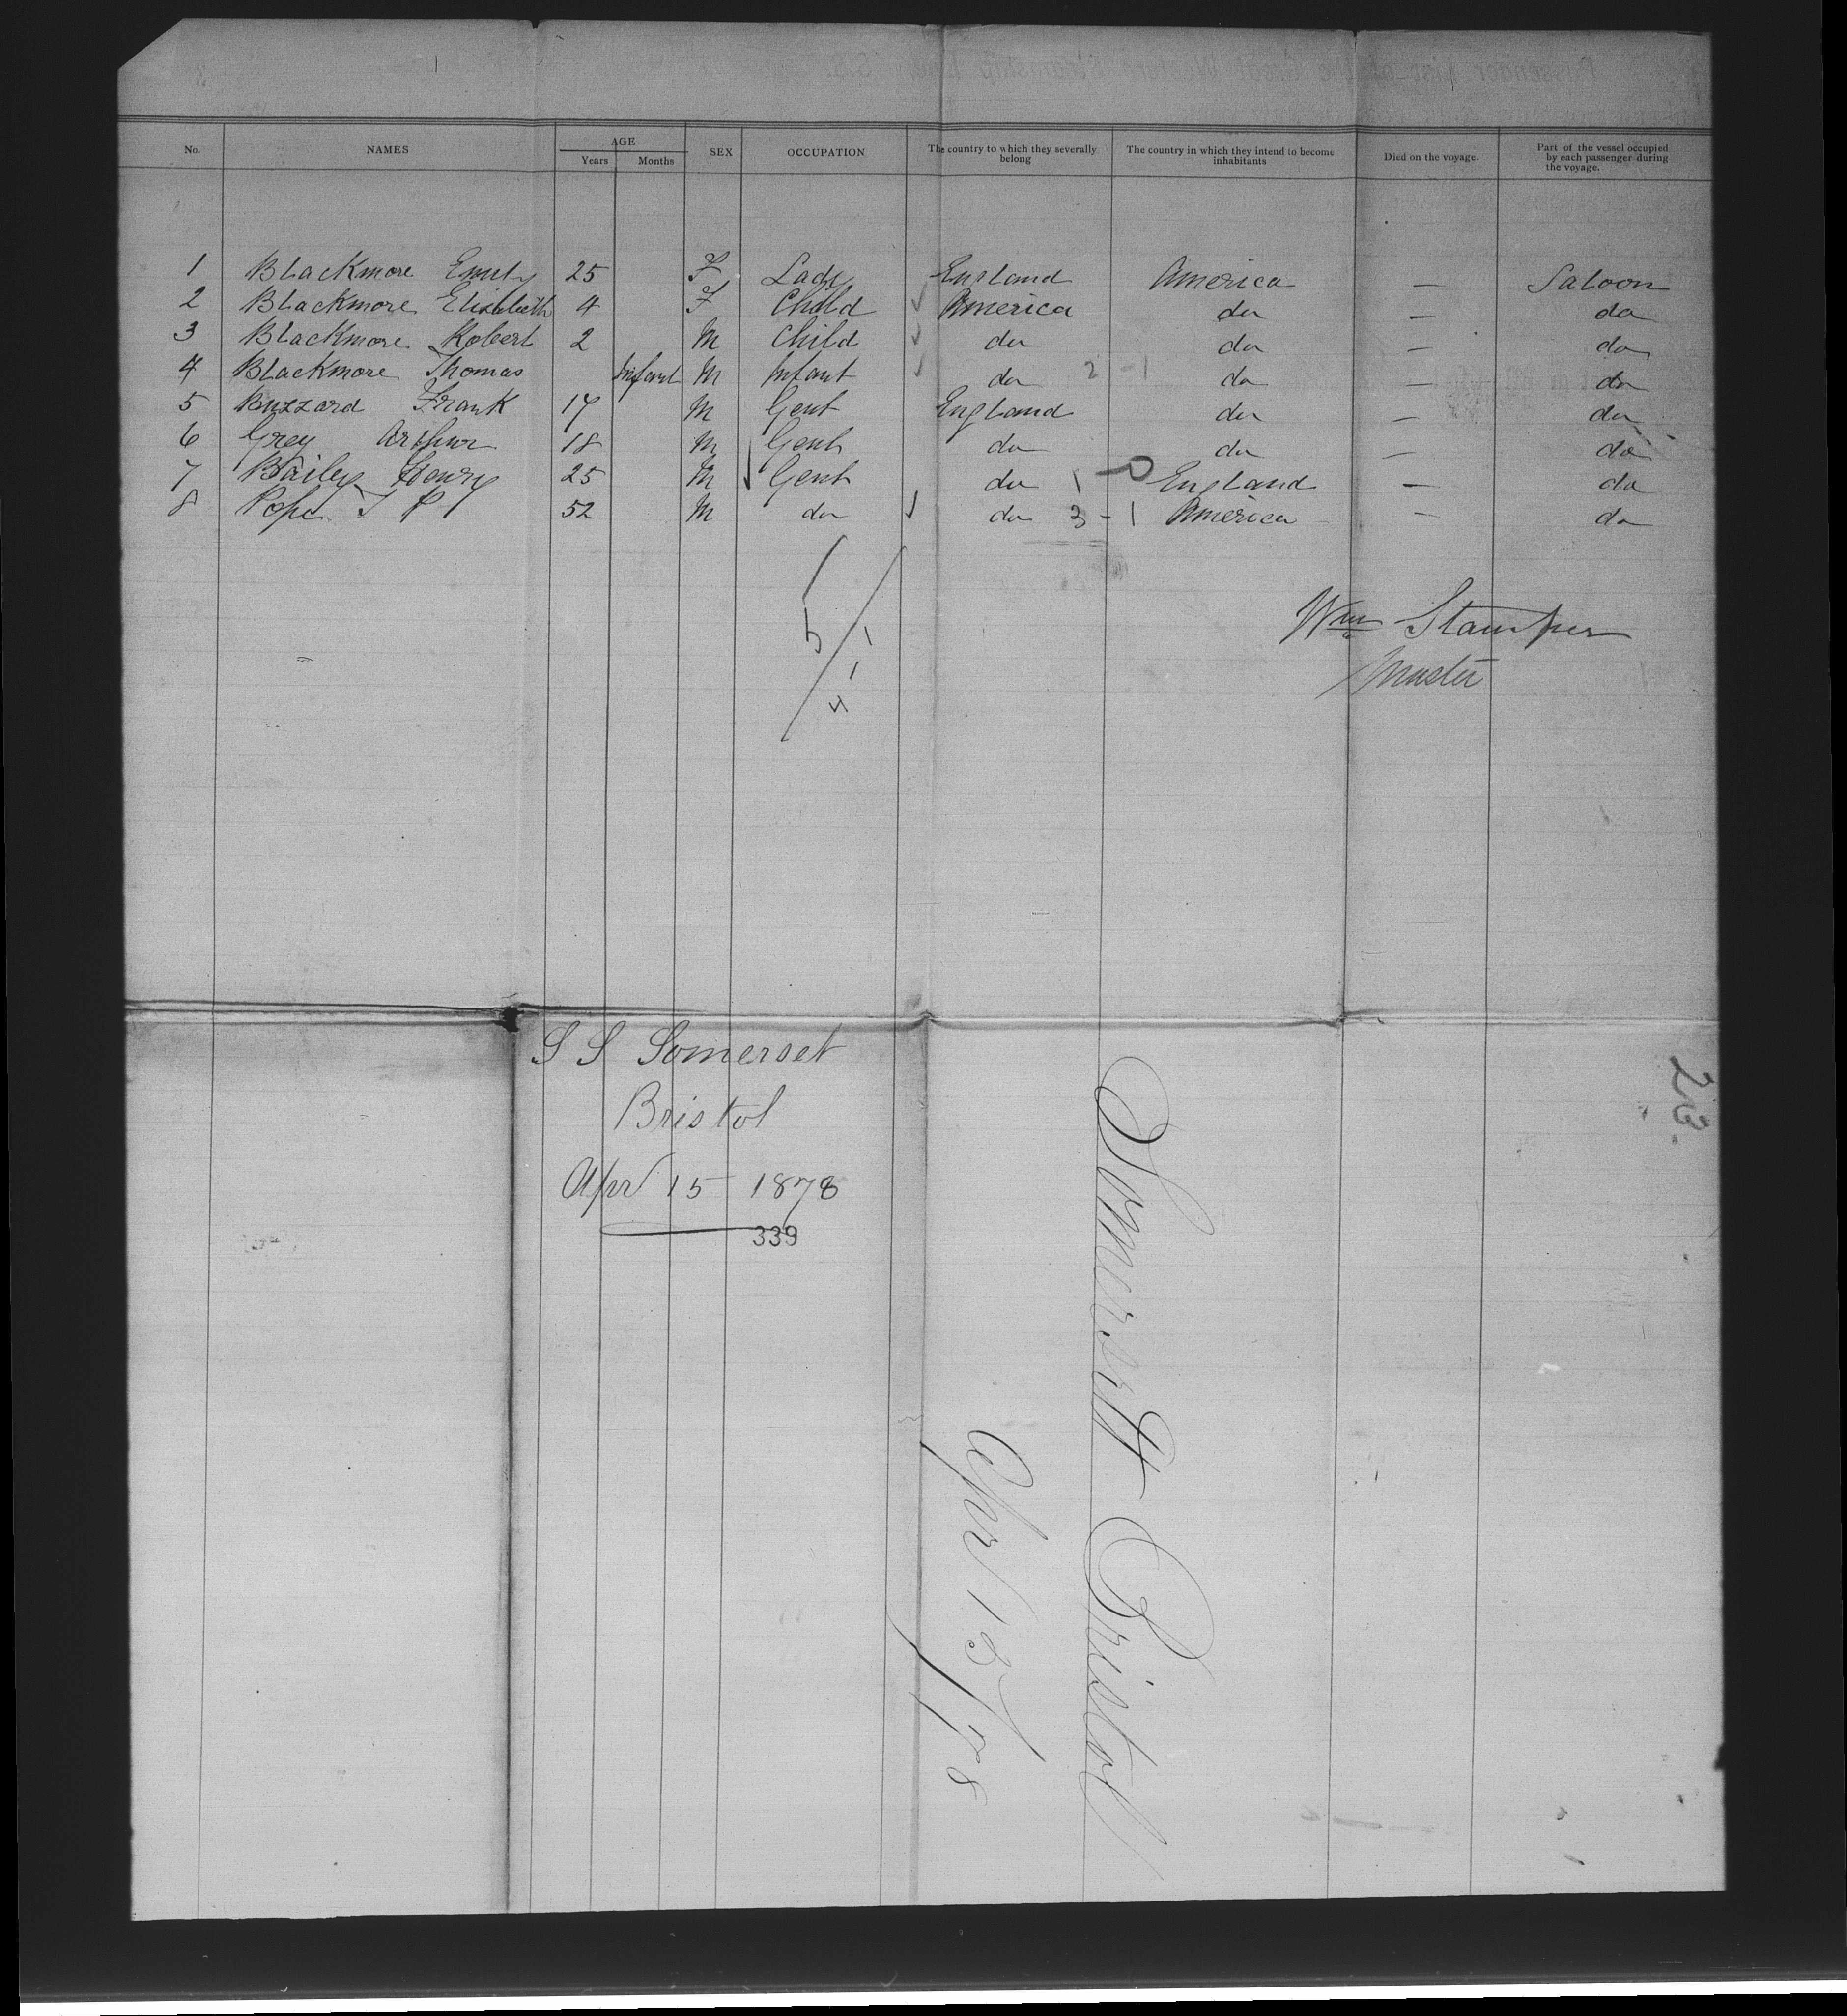 No. NAMES AGE Years Months SEX OCCUPATION The country to which they severally belong The country in which they intend to become inhabitants Died on the voyage. Part of the vessel occupied by each passenger during the voyage.
1 Blackmore Emily 25 F Lady England America — Saloon
2 Blackmore Elizabeth 4 F Child America do — do
3 Blackmore Robert 2 M Child do do — do
4 Blackmore Thomas Infant M Infant do 2 - 1 do — do
5 Buzzard Frank 17 M Gent England do — do
6 Grey Arthur 18 M Gent do do — do
7 Bailey Henry 25 M Gent do 1 - 0 England — do
8 Pope T P 52 M do do 3 - 1 America — do
Wm Stamper
Master
S S Somerset
Bristol
Apr 15 1878
339
Somersett Bristol
Apr 13/78
23.